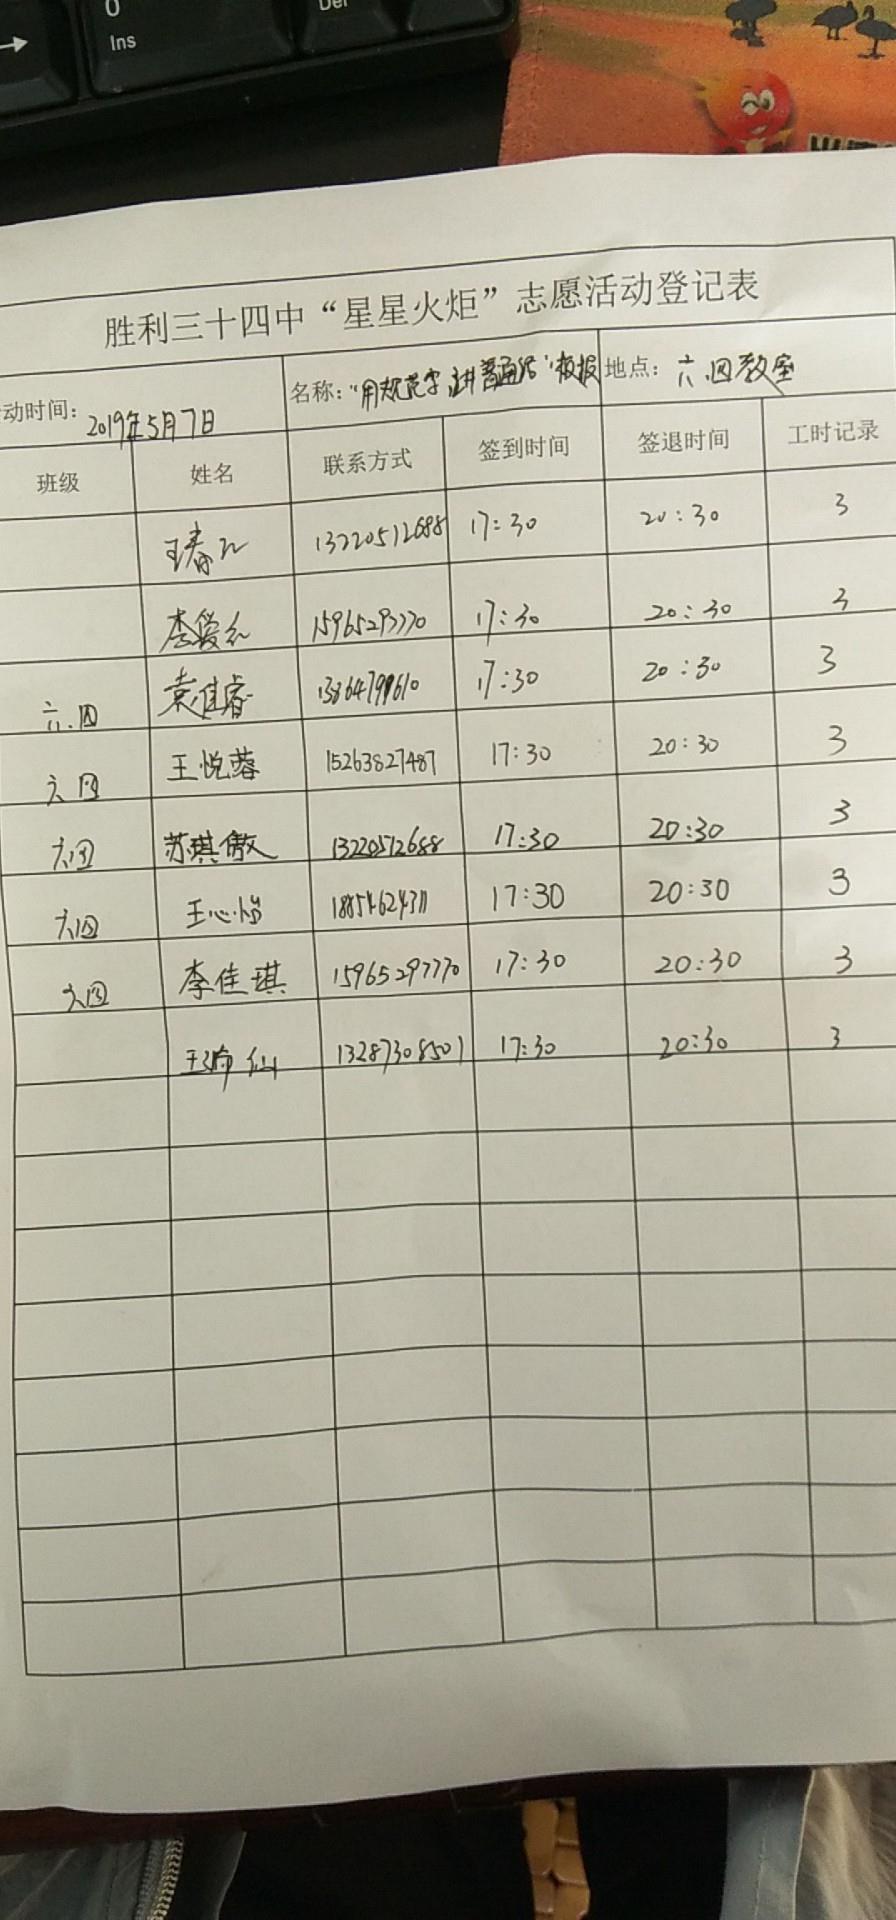 0
Ins
Del
胜利三十四中“星星火炬”志愿活动登记表
动时间：2019年5月7日 名称：“用规范字，讲普通话”板报 地点：六.四教室
班级 姓名 联系方式 签到时间 签退时间 工时记录
13220512688 17:30 20:30 3
李爱红 15965297770 17:30 20:30 3
六.四 袁佳睿 17:30 20:30 3
六四 王悦蓉 15263827487 17:30 20:30 3
六四 苏琪傲 13220512688 17:30 20:30 3
六四 王心怡 18854624311 17:30 20:30 3
六四 李佳琪 15965297770 17:30 20:30 3
13287308501 17:30 20:30 3